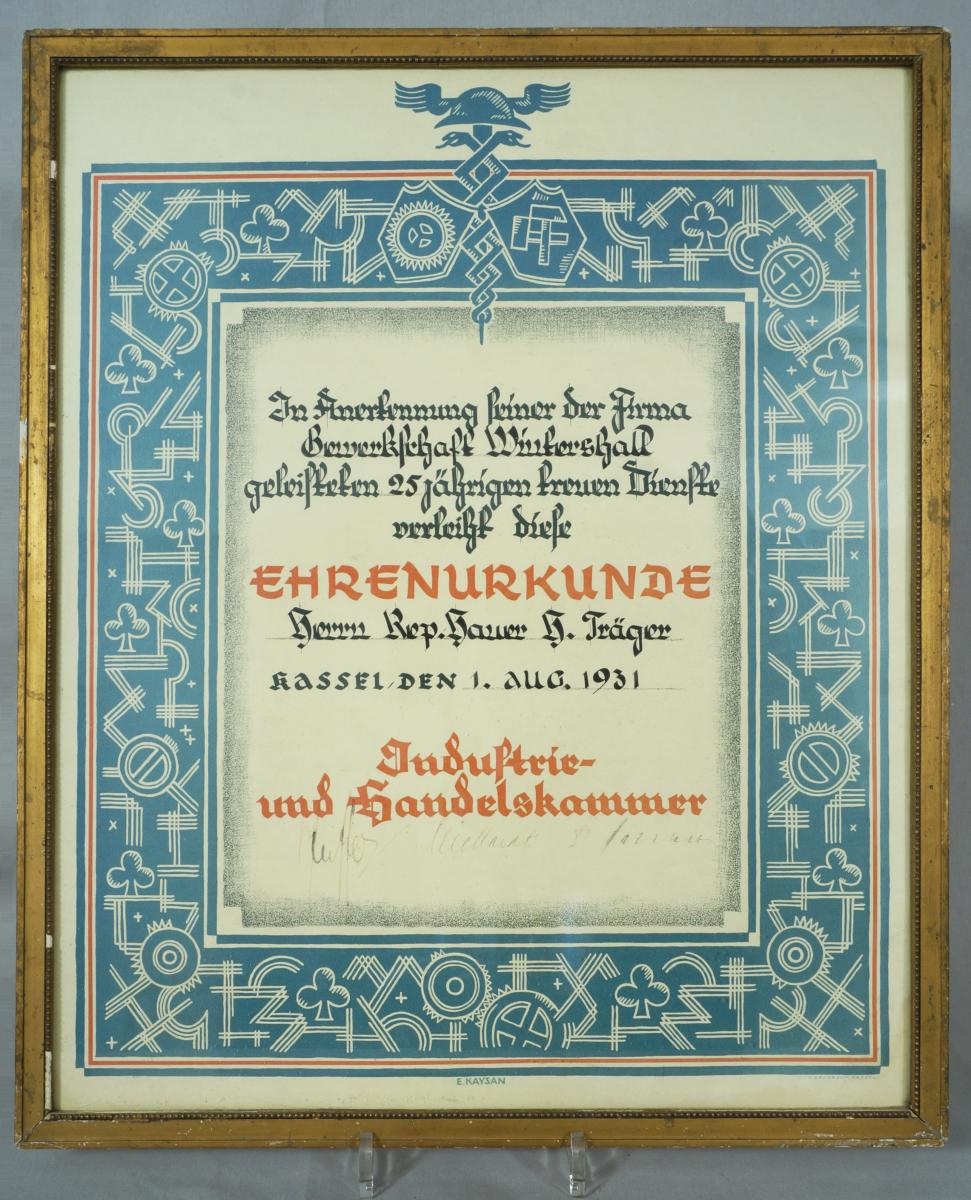 In Anerkennung seiner der Firma
Gewerkschaft Wintershall
geleisteten 25jährigen treuen Dienste
verleiht diese
EHRENURKUNDE
Herrn Rep. Hauer H. Träger
KASSEL, DEN 1. AUG. 1931
Industrie-
und Handelskammer
E. KAYSAN